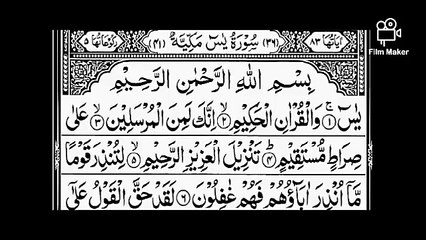 اٰیَاتُهَا ۸۳ (۳۶) سُوْرَةُ یٰسٓ مَكِّیَّةٌ (۴۱) رُكُوْعَاتُهَا ۵
بِسْمِ اللّٰهِ الرَّحْمٰنِ الرَّحِیْمِ
یٰسٓ ۚ﴿۱﴾ وَالْقُرْاٰنِ الْحَكِیْمِ ۙ﴿۲﴾ اِنَّكَ لَمِنَ الْمُرْسَلِیْنَ ۙ﴿۳﴾ عَلٰی
صِرَاطٍ مُّسْتَقِیْمٍ ؕ﴿۴﴾ تَنْزِیْلَ الْعَزِیْزِ الرَّحِیْمِ ۙ﴿۵﴾ لِتُنْذِرَ قَوْمًا
مَّاۤ اُنْذِرَ اٰبَآؤُهُمْ فَهُمْ غٰفِلُوْنَ ﴿۶﴾ لَقَدْ حَقَّ الْقَوْلُ عَلٰۤی
Film Maker